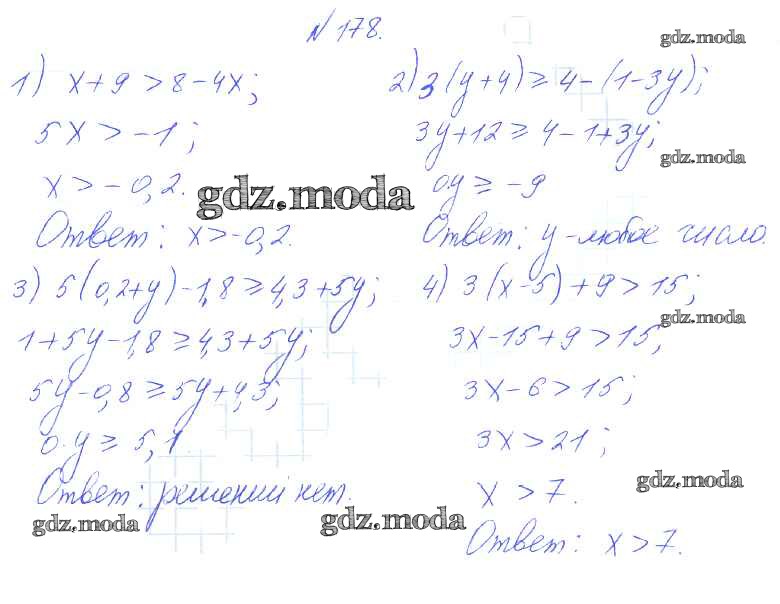 № 178.
gdz.moda
1) x+9>8-4x;
5x>-1;
x>-0,2.
gdz.moda
Ответ: x>-0,2.
2) 3(y+4)≥4-(1-3y);
3y+12≥4-1+3y;
gdz.moda
0y≥-9
Ответ: y-любое число.
3) 5(0,2+y)-1,8≥4,3+5y;
1+5y-1,8≥4,3+5y;
5y-0,8≥5y+4,3;
0·y≥5,1
Ответ: решений нет.
gdz.moda
gdz.moda
4) 3(x-5)+9>15;
gdz.moda
3x-15+9>15;
3x-6>15;
3x>21;
gdz.moda
x>7.
Ответ: x>7.